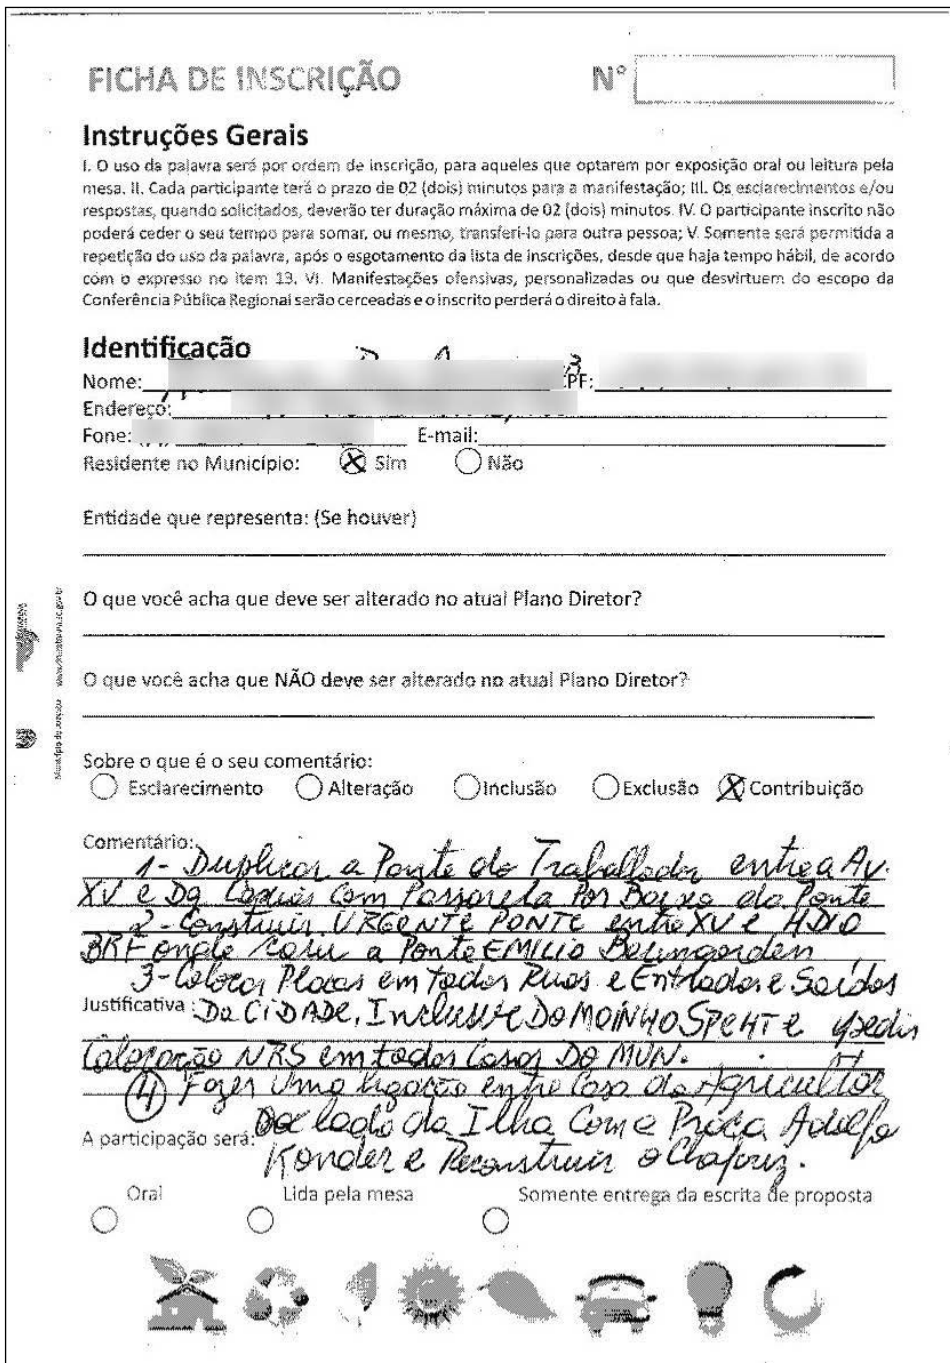 FICHA DE INSCRIÇÃO Nº
Instruções Gerais
I. O uso da palavra será por ordem de inscrição, para aqueles que optarem por exposição oral ou leitura pela
mesa. II. Cada participante terá o prazo de 02 (dois) minutos para a manifestação; III. Os esclarecimentos e/ou
respostas, quando solicitados, deverão ter duração máxima de 02 (dois) minutos. IV. O participante inscrito não
poderá ceder o seu tempo para somar, ou mesmo, transferi-lo para outra pessoa; V. Somente será permitida a
repetição do uso da palavra, após o esgotamento da lista de inscrições, desde que haja tempo hábil, de acordo
com o expresso no item 13. VI. Manifestações ofensivas, personalizadas ou que desvirtuem do escopo da
Conferência Pública Regional serão cerceadas e o inscrito perderá o direito à fala.
Identificação
Nome: CPF:
Endereço:
Fone: E-mail:
Residente no Município: Sim Não
Entidade que representa: (Se houver)
O que você acha que deve ser alterado no atual Plano Diretor?
O que você acha que NÃO deve ser alterado no atual Plano Diretor?
Sobre o que é o seu comentário:
Esclarecimento Alteração Inclusão Exclusão Contribuição
Comentário:
1- Duplicar a Ponte do Trabalhador entre a Av.
XV e Dq Caxias Com Passarela Por Baixo da Ponte
2- Construir URGENTE PONTE entre XV e
BRF onde caiu a Ponte EMILIO
3- Colocar Placas em todas Ruas e Entradas e Saídas
Justificativa: Da CIDADE, Inclusive DO MOINHO SPEHT e
Colocação NRS em todas Casas DO MUN.
4 Fazer Uma ligação entre Casa do Agricultor
do lado da Ilha Com a Praça Adolfo
A participação será: Konder e Reconstruir o Chafariz.
Oral Lida pela mesa Somente entrega da escrita de proposta